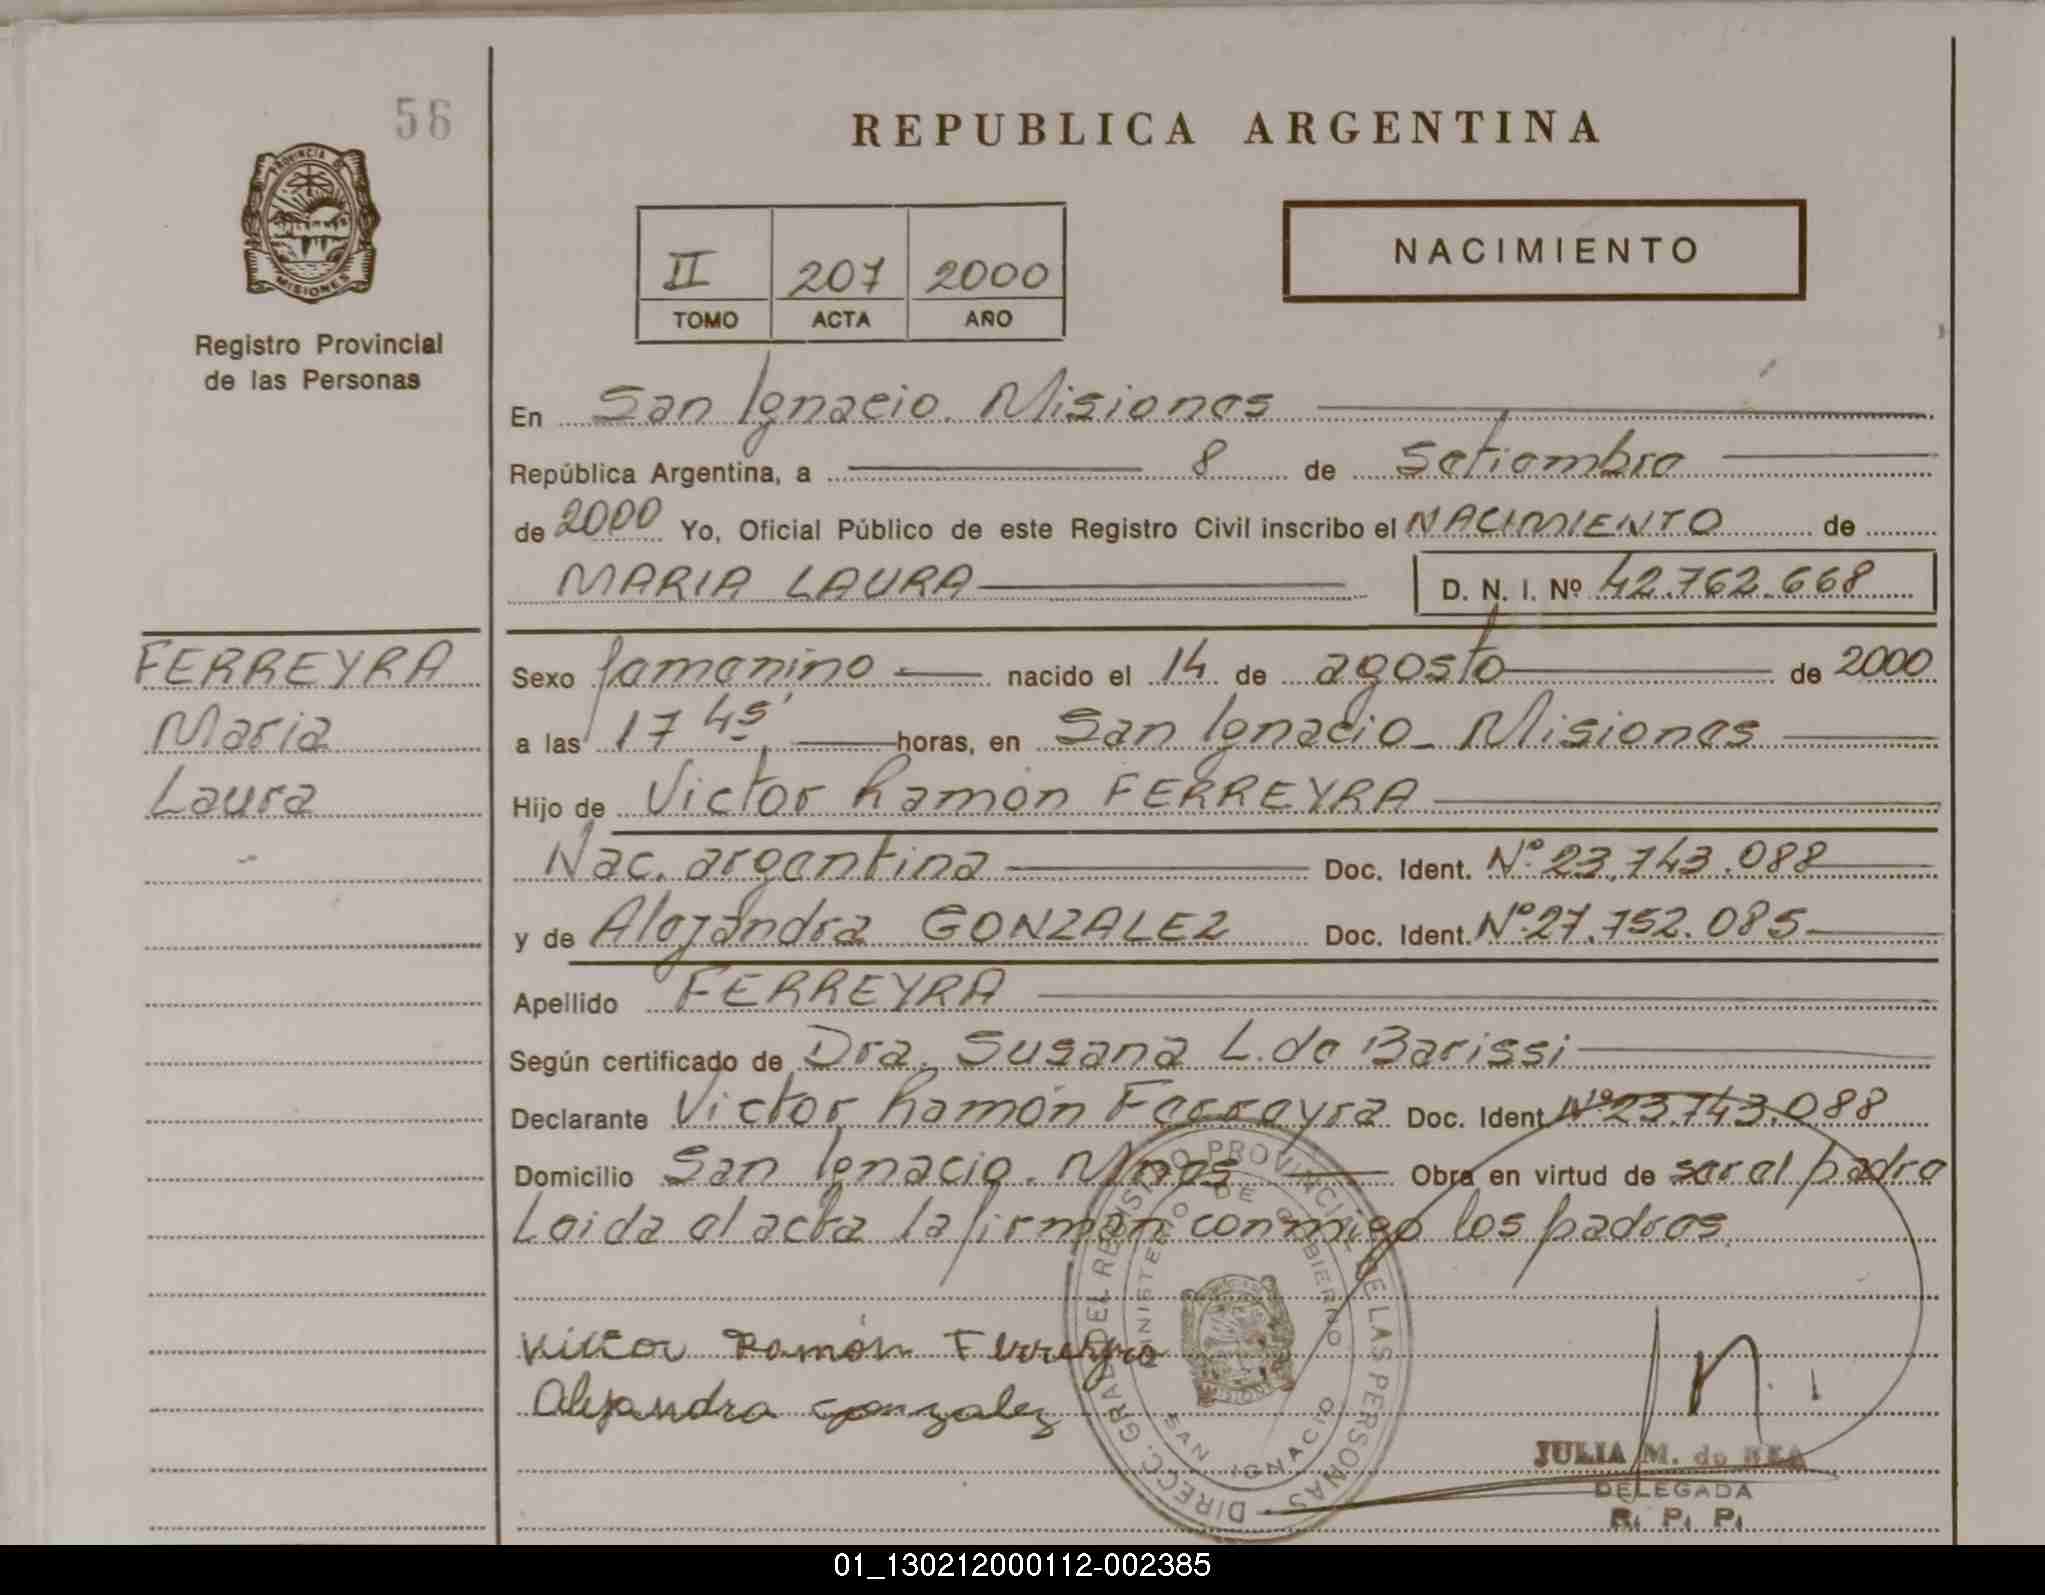 56
REPUBLICA ARGENTINA
PROVINCIA DE MISIONES
Registro Provincial
de las Personas
II 207 2000
TOMO ACTA AÑO
NACIMIENTO
En San Ignacio. Misiones
República Argentina, a 8 de Setiembre
de 2000 Yo, Oficial Público de este Registro Civil inscribo el NACIMIENTO de
MARIA LAURA D. N. I. Nº 42.762.668
FERREYRA
Maria
Laura
Sexo femenino nacido el 14 de agosto de 2000
a las 17 45' horas, en San Ignacio - Misiones
Hijo de Victor Ramón FERREYRA
Nac. argentina Doc. Ident. Nº 23.743.088
y de Alejandra GONZALEZ Doc. Ident. Nº 27.752.085
Apellido FERREYRA
Según certificado de Dra. Susana L. de Barissi
Declarante Victor Ramón Ferreyra Doc. Ident Nº 23.743.088
Domicilio San Ignacio. Mnes Obra en virtud de ser el padre
Leida el acta la firman conmigo los padres.
Victor Ramón Ferreyra
Alejandra gonzalez
DIRECC. GRAL. DEL REGISTRO PROVINCIAL DE LAS PERSONAS
MINISTERIO DE GOBIERNO
SAN IGNACIO
JULIA M. de REA
DELEGADA
R. P. P.
01_130212000112-002385